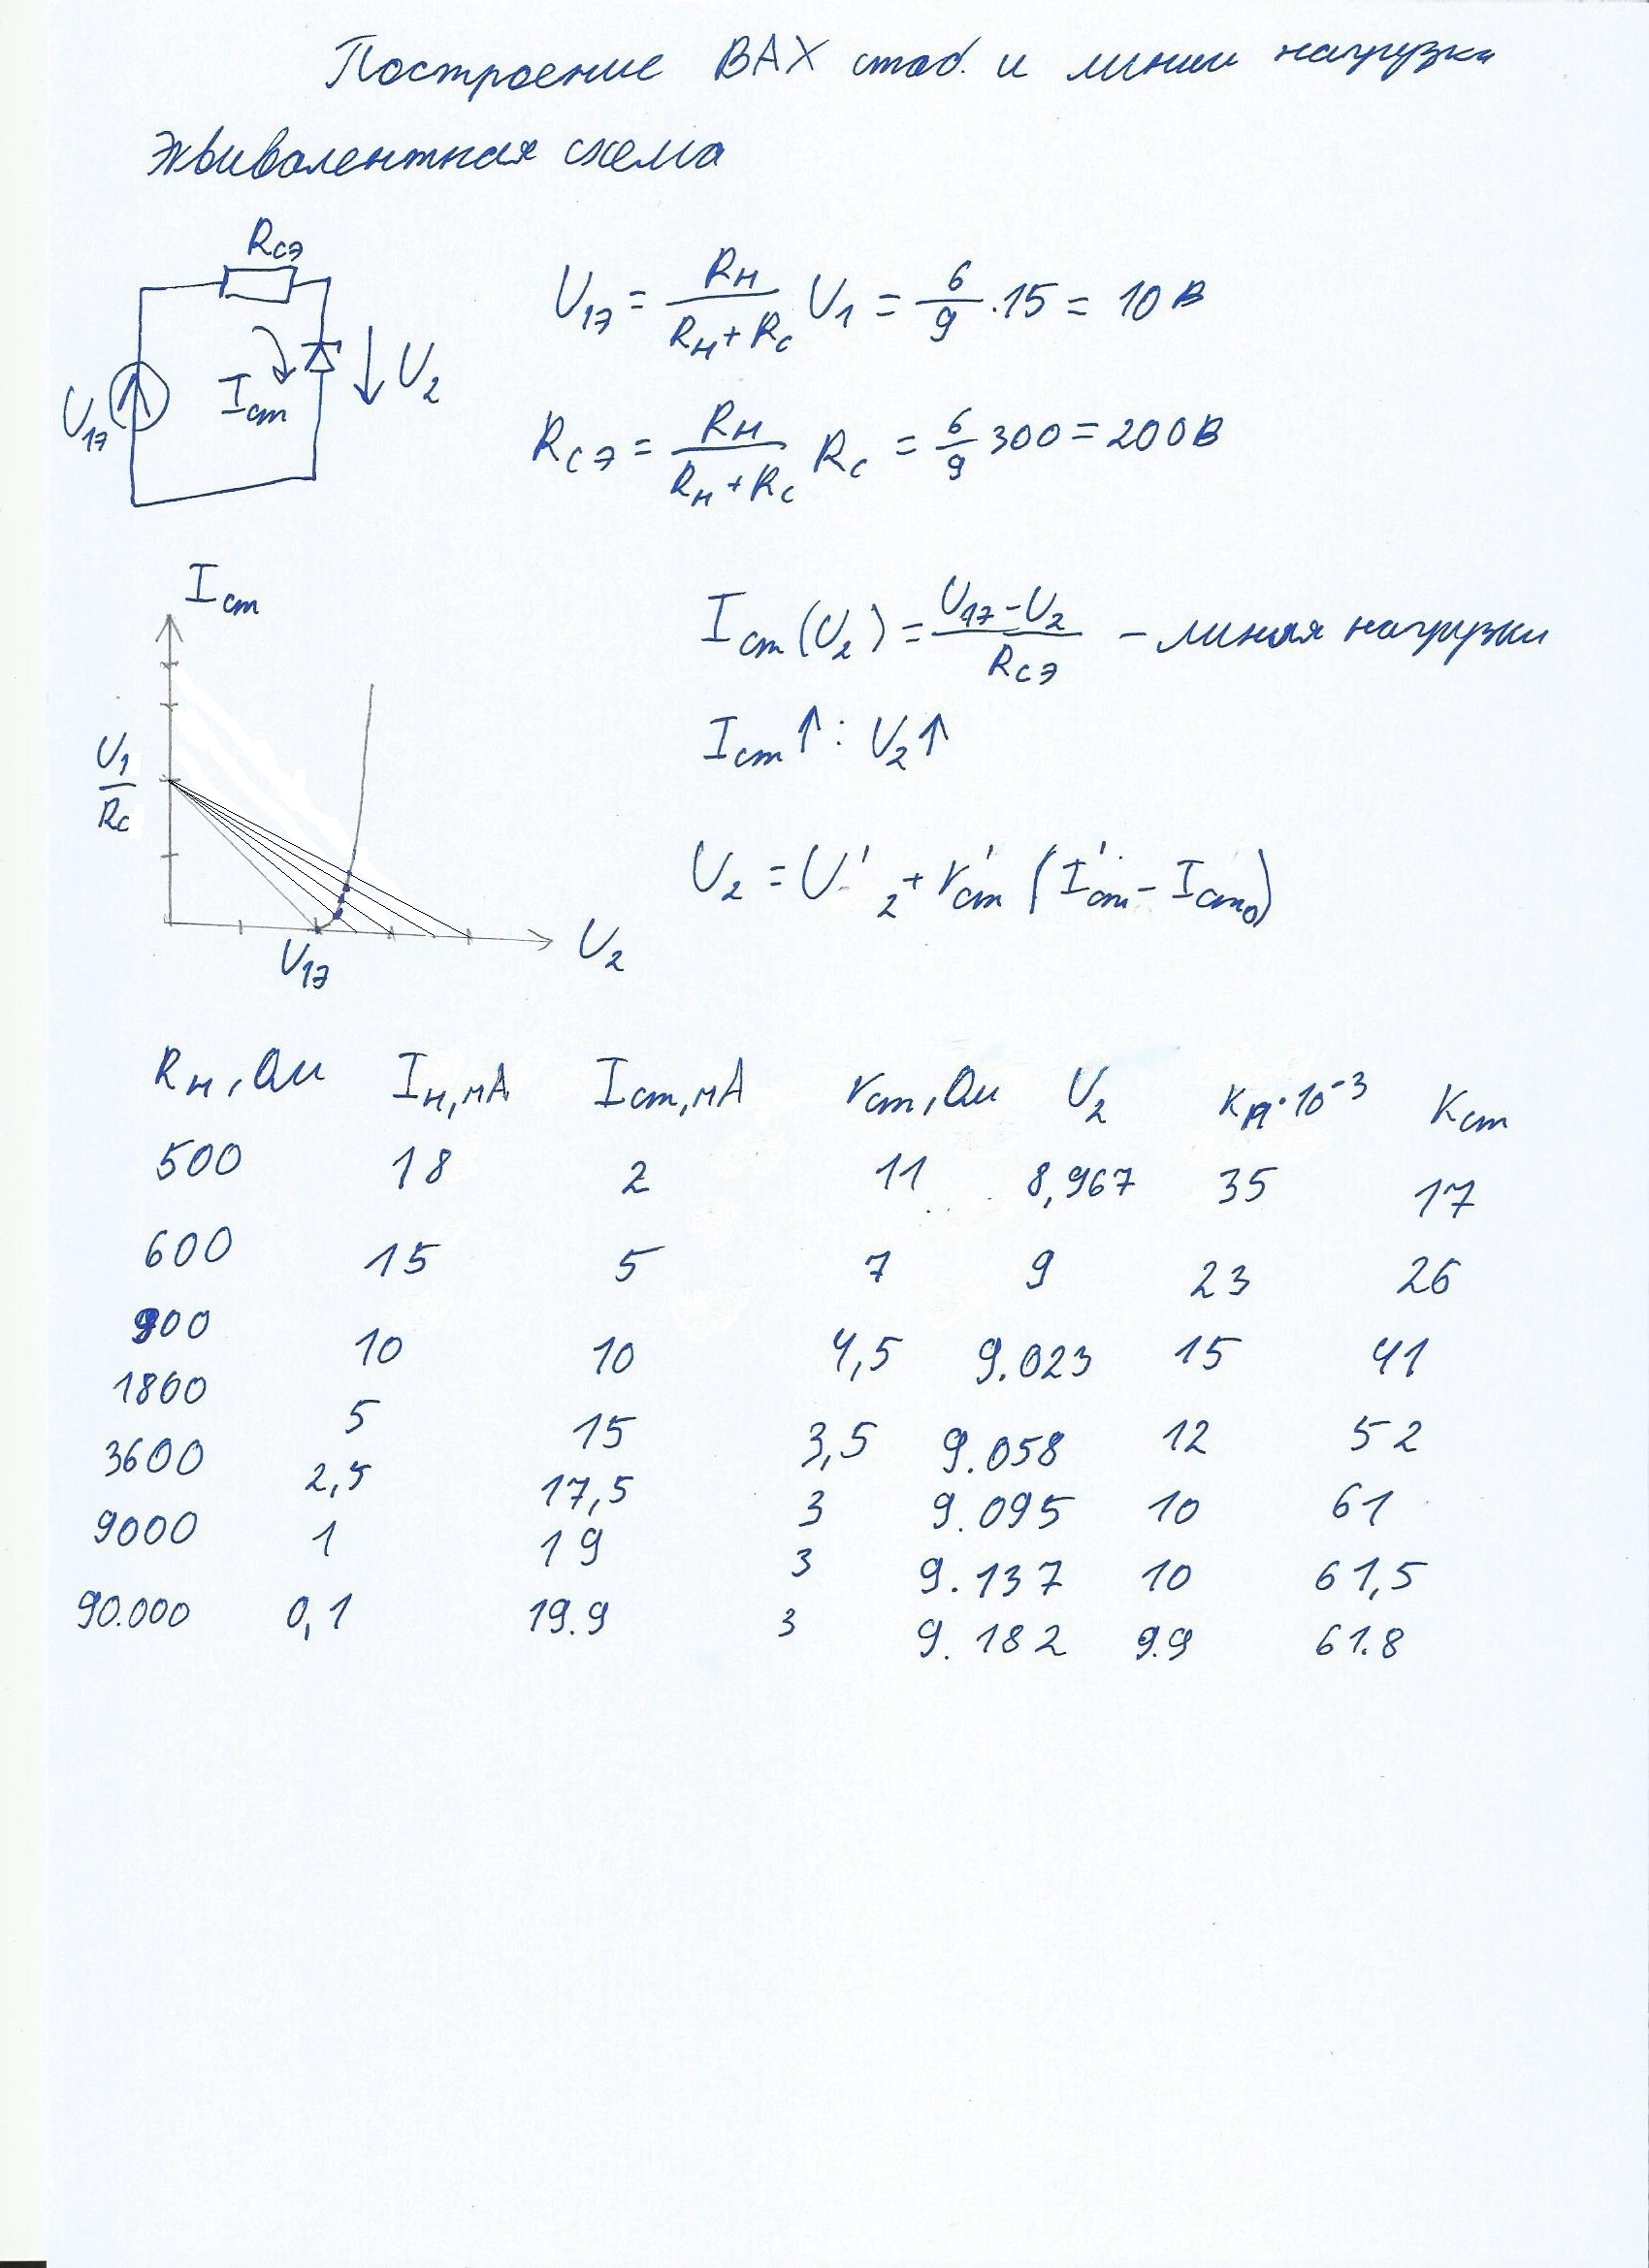 Построение ВАХ стаб. и линии нагрузки
Эквивалентная схема
Rсэ
U1э
Iст
U2
U1э = Rн / (Rн + Rс) U1 = 6/9 · 15 = 10 В
Rсэ = Rн / (Rн + Rс) Rс = 6/9 300 = 200 В
Iст
U1 / Rс
U1э
U2
Iст (U2) = (U1э - U2) / Rсэ – линия нагрузки
Iст ↑ : U2 ↑
U2 = U'2 + r'ст (I'ст - Iст0)
Rн, Ом Iн, мА Iст, мА rст, Ом U2 Kд·10⁻³ Kст
500 18 2 11 8,967 35 17
600 15 5 7 9 23 26
900 10 10 4,5 9.023 15 41
1800 5 15 3,5 9.058 12 52
3600 2,5 17,5 3 9.095 10 61
9000 1 19 3 9.137 10 61,5
90.000 0,1 19.9 3 9.182 9.9 61.8